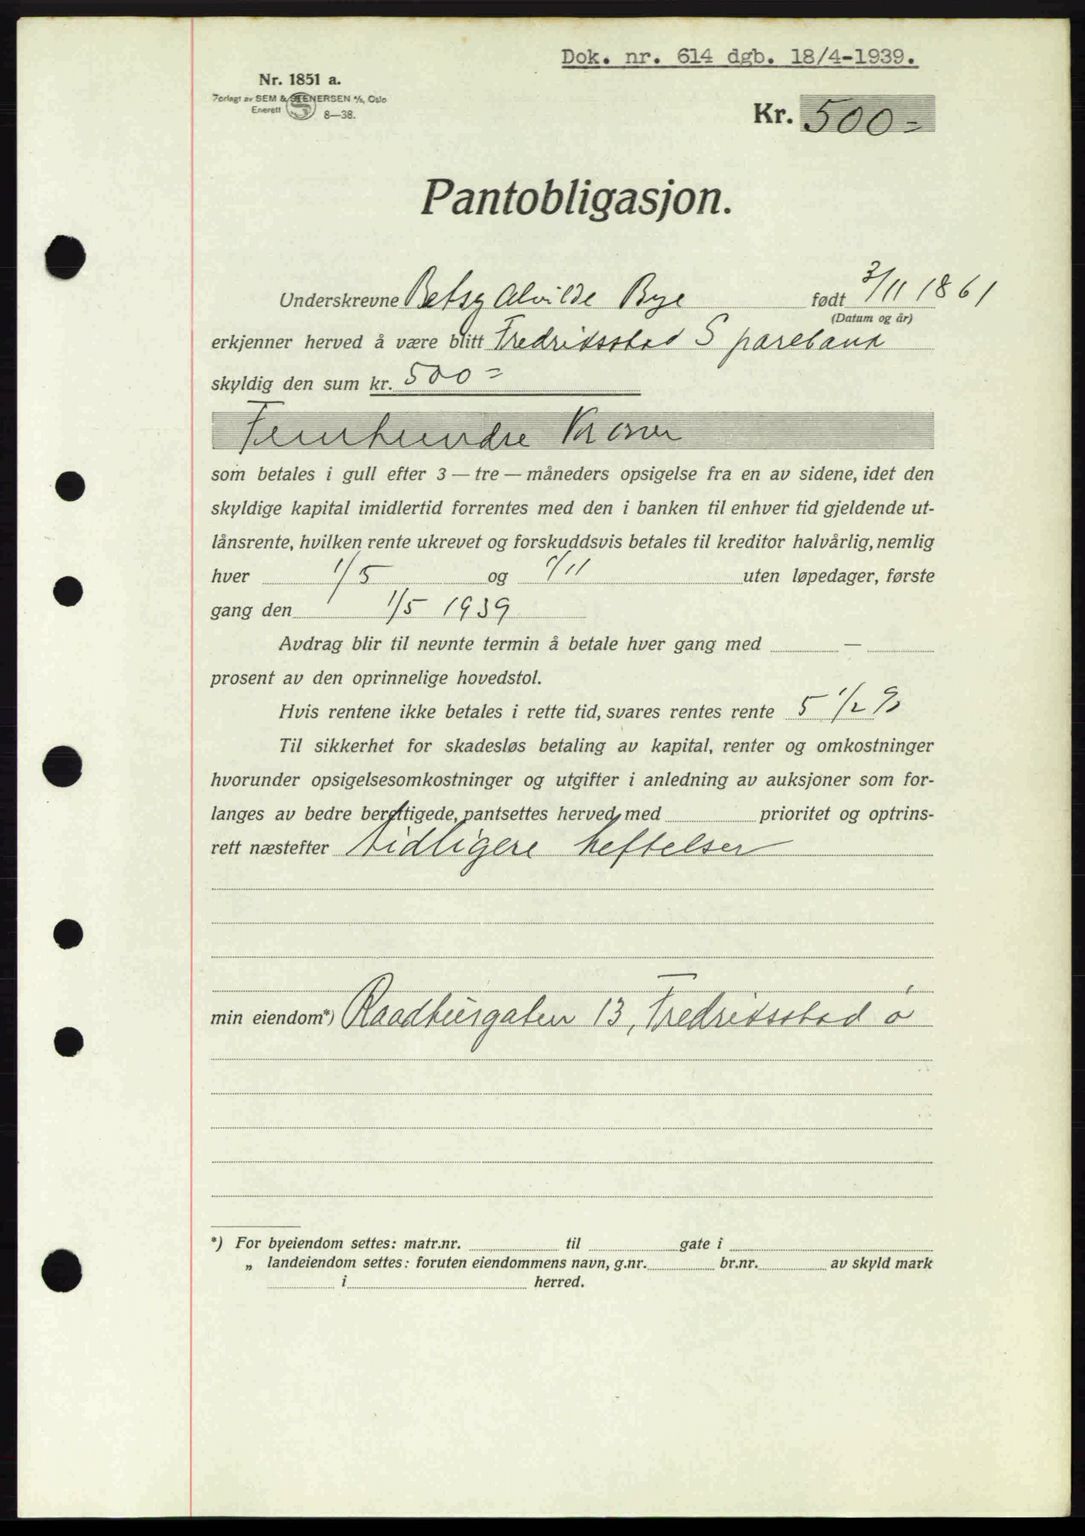 Dok. nr. 614 dgb. 18/4-1939.
Nr. 1851 a.
Forlagt av SEM & STENERSEN A/S, Oslo
Enerett 8—38.
Kr. 500=
Pantobligasjon.
Underskrevne Betsy Alvilde Bye født 3/11 1861
(Datum og år)
erkjenner herved å være blitt Fredriksstad Sparebank
skyldig den sum kr. 500=
Femhundre Kroner
som betales i gull efter 3 — tre — måneders opsigelse fra en av sidene, idet den
skyldige kapital imidlertid forrentes med den i banken til enhver tid gjeldende ut-
lånsrente, hvilken rente ukrevet og forskuddsvis betales til kreditor halvårlig, nemlig
hver 1/5 og 1/11 uten løpedager, første
gang den 1/5 1939
Avdrag blir til nevnte termin å betale hver gang med —
prosent av den oprinnelige hovedstol.
Hvis rentene ikke betales i rette tid, svares rentes rente 5 1/2 %
Til sikkerhet for skadesløs betaling av kapital, renter og omkostninger
hvorunder opsigelsesomkostninger og utgifter i anledning av auksjoner som for-
langes av bedre berettigede, pantsettes herved med prioritet og optrins-
rett næstefter tidligere heftelser
min eiendom*) Raadhusgaten 13, Fredriksstad ø
*) For byeiendom settes: matr.nr. til gate i
„ landeiendom settes: foruten eiendommens navn, g.nr. br.nr. av skyld mark
i herred.